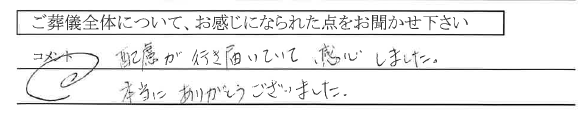 ご葬儀全体について、お感じになられた点をお聞かせ下さい
コメント 配慮が行き届いていて、感心しました。
本当にありがとうございました。